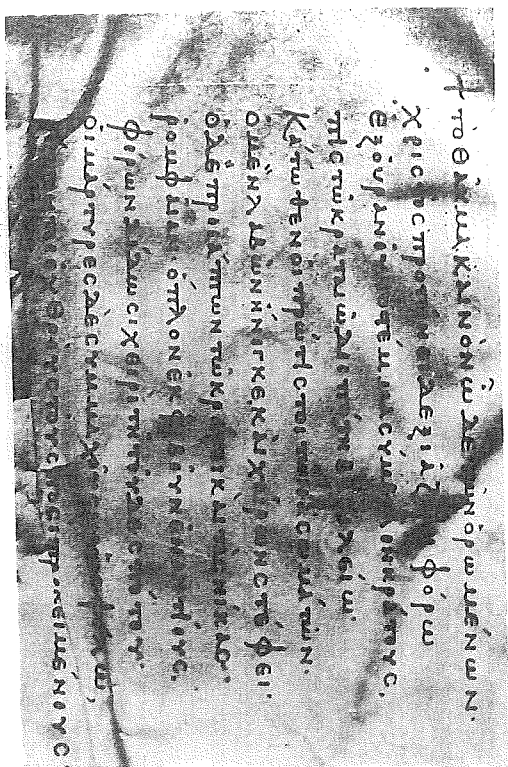 + τὸ θαῦμα καινὸν ὧδε τῶν ὁρωμένων·
χριστὸς προτείνει δεξιᾷ ζ φόρω
ἐξ οὐρανοῦ τὸ στέμμα σύμβολον κράτους,
πιστῶ κραταιῶ δεσπότη βασιλείω·
Κάτωθεν οἱ πρώτιστοι τῶν ἀσωμάτων·
ὁ μὲν λαβὼν ἤνεγκε καὶ χαίρων στέφει·
ὁ δὲ προσάπτων τῶ κράτει καὶ τὰς νίκας·
ῥομφαίαν ὅπλον ἐκφοβοῦν ἐναντίους,
φέρων δίδωσι χειρὶ τῆ τοῦ δεσπότου·
οἱ μάρτυρες δὲ συμμαχοῦσιν ὡς φίλω,
ἐχθροὺς τοὺς ποσὶ προκειμένους·